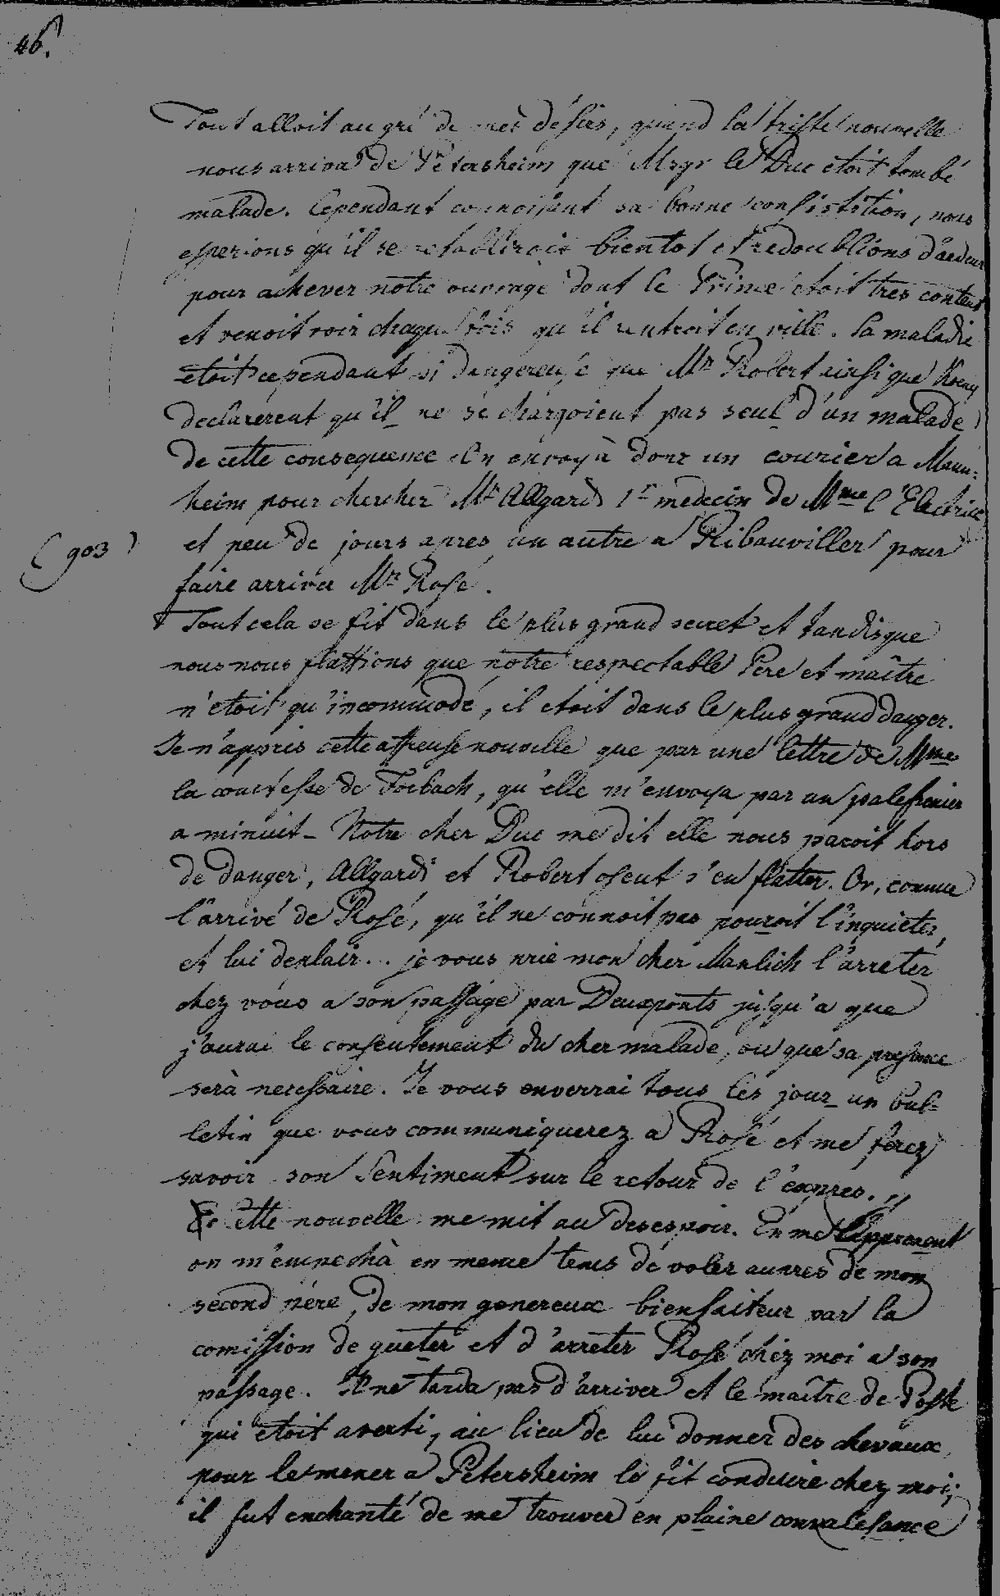 46.
Tout alloit au gré de mes désirs, quand la triste nouvelle
nous arriva de Petersheim que Msgr le Duc etoit tombé
malade. Cependant connoissant sa bonne constitution, nous
esperions qu'il se retabliroit bientot et redoublions d'ardeur
pour achever notre ouvrage dont le Prince étoit tres content
et venoit voir chaque fois qu'il rentroit en ville. La maladie
etoit cependant si dangereuse que Mr Robert ainsi que
declarèrent qu'il ne se chargoient pas seul d'un malade
de cette consequence. On envoyà donc un courier a Mann-
heim pour chercher Mr Allgardi 1r medecin de Mme l'Electrice
(903) et peu de jours apres un autre a Ribauviller pour
faire arriver Mr Rosé.
Tout cela se fit dans le plus grand secret et tandisque
nous nous flattions que notre respectable Pere et maître
n'etoit qu'incommodé, il etoit dans le plus grand danger.
Je n'appris cette affreuse nouvelle que par une lettre de Mme
la comtesse de Forbach, qu'elle m'envoya par un palefrenier
a minuit - Notre cher Duc me dit elle nous paroit hors
de danger, Allgardi et Robert osent s'en flatter. Or, comme
l'arrivé de Rosé, qu'il ne connoit pas pouroit l'inquieter,
et lui deplair... je vous prie mon cher Manlich l'arreter
chez vous a son passage par Deuxponts jusqu'a que
j'aurai le consentement du cher malade, ou que sa presence
serà necessaire. Je vous enverrai tous les jour un bul-
letin que vous communiquerez a Rosé et me ferez
savoir son sentiment sur le retour de l'éxpres."
Cette nouvelle me mit au desespoir. En me l'apprenant
on m'empechà en meme tems de voler aupres de mon
second père, de mon genereux bienfaiteur par la
comission de gueter et d'arreter Rosé chez moi a son
passage. Il ne tarda pas d'arriver et le maître de Poste
qui etoit averti, au lieu de lui donner des chevaux
pour le mener a Petersheim le fit conduire chez moi;
il fut enchanté de me trouver en plaine convalesance